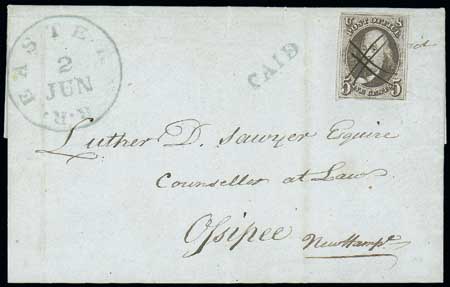 EASTERN
2
JUN
R.R.
PAID
POST OFFICE
5 FIVE CENTS 5
Luther D. Sawyer Esquire
Counsellor at Law
Ossipee
New Hampe.